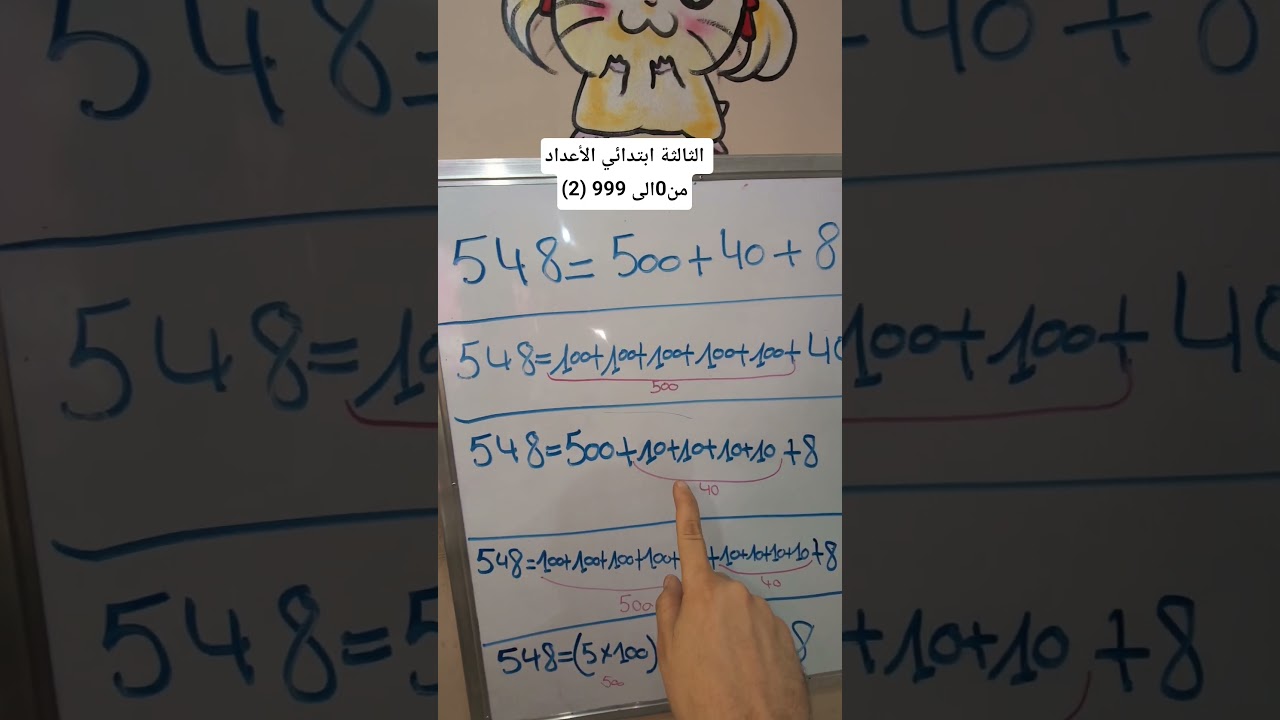 الثالثة ابتدائي الأعداد
من0الى 999 (2)
548=500+40+8
548=100+100+100+100+100+40
500
548=500+10+10+10+10+8
40
548=100+100+100+100+ +10+10+10+10+8
40
500
548=(5×100) 8
500